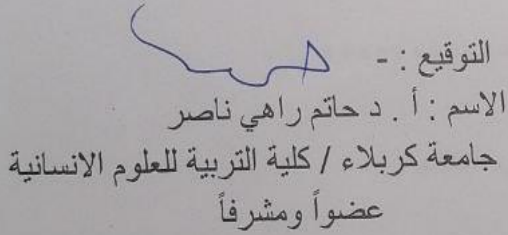 التوقيع : -
الاسم : أ . د حاتم راهي ناصر
جامعة كربلاء / كلية التربية للعلوم الانسانية
عضواً ومشرفاً